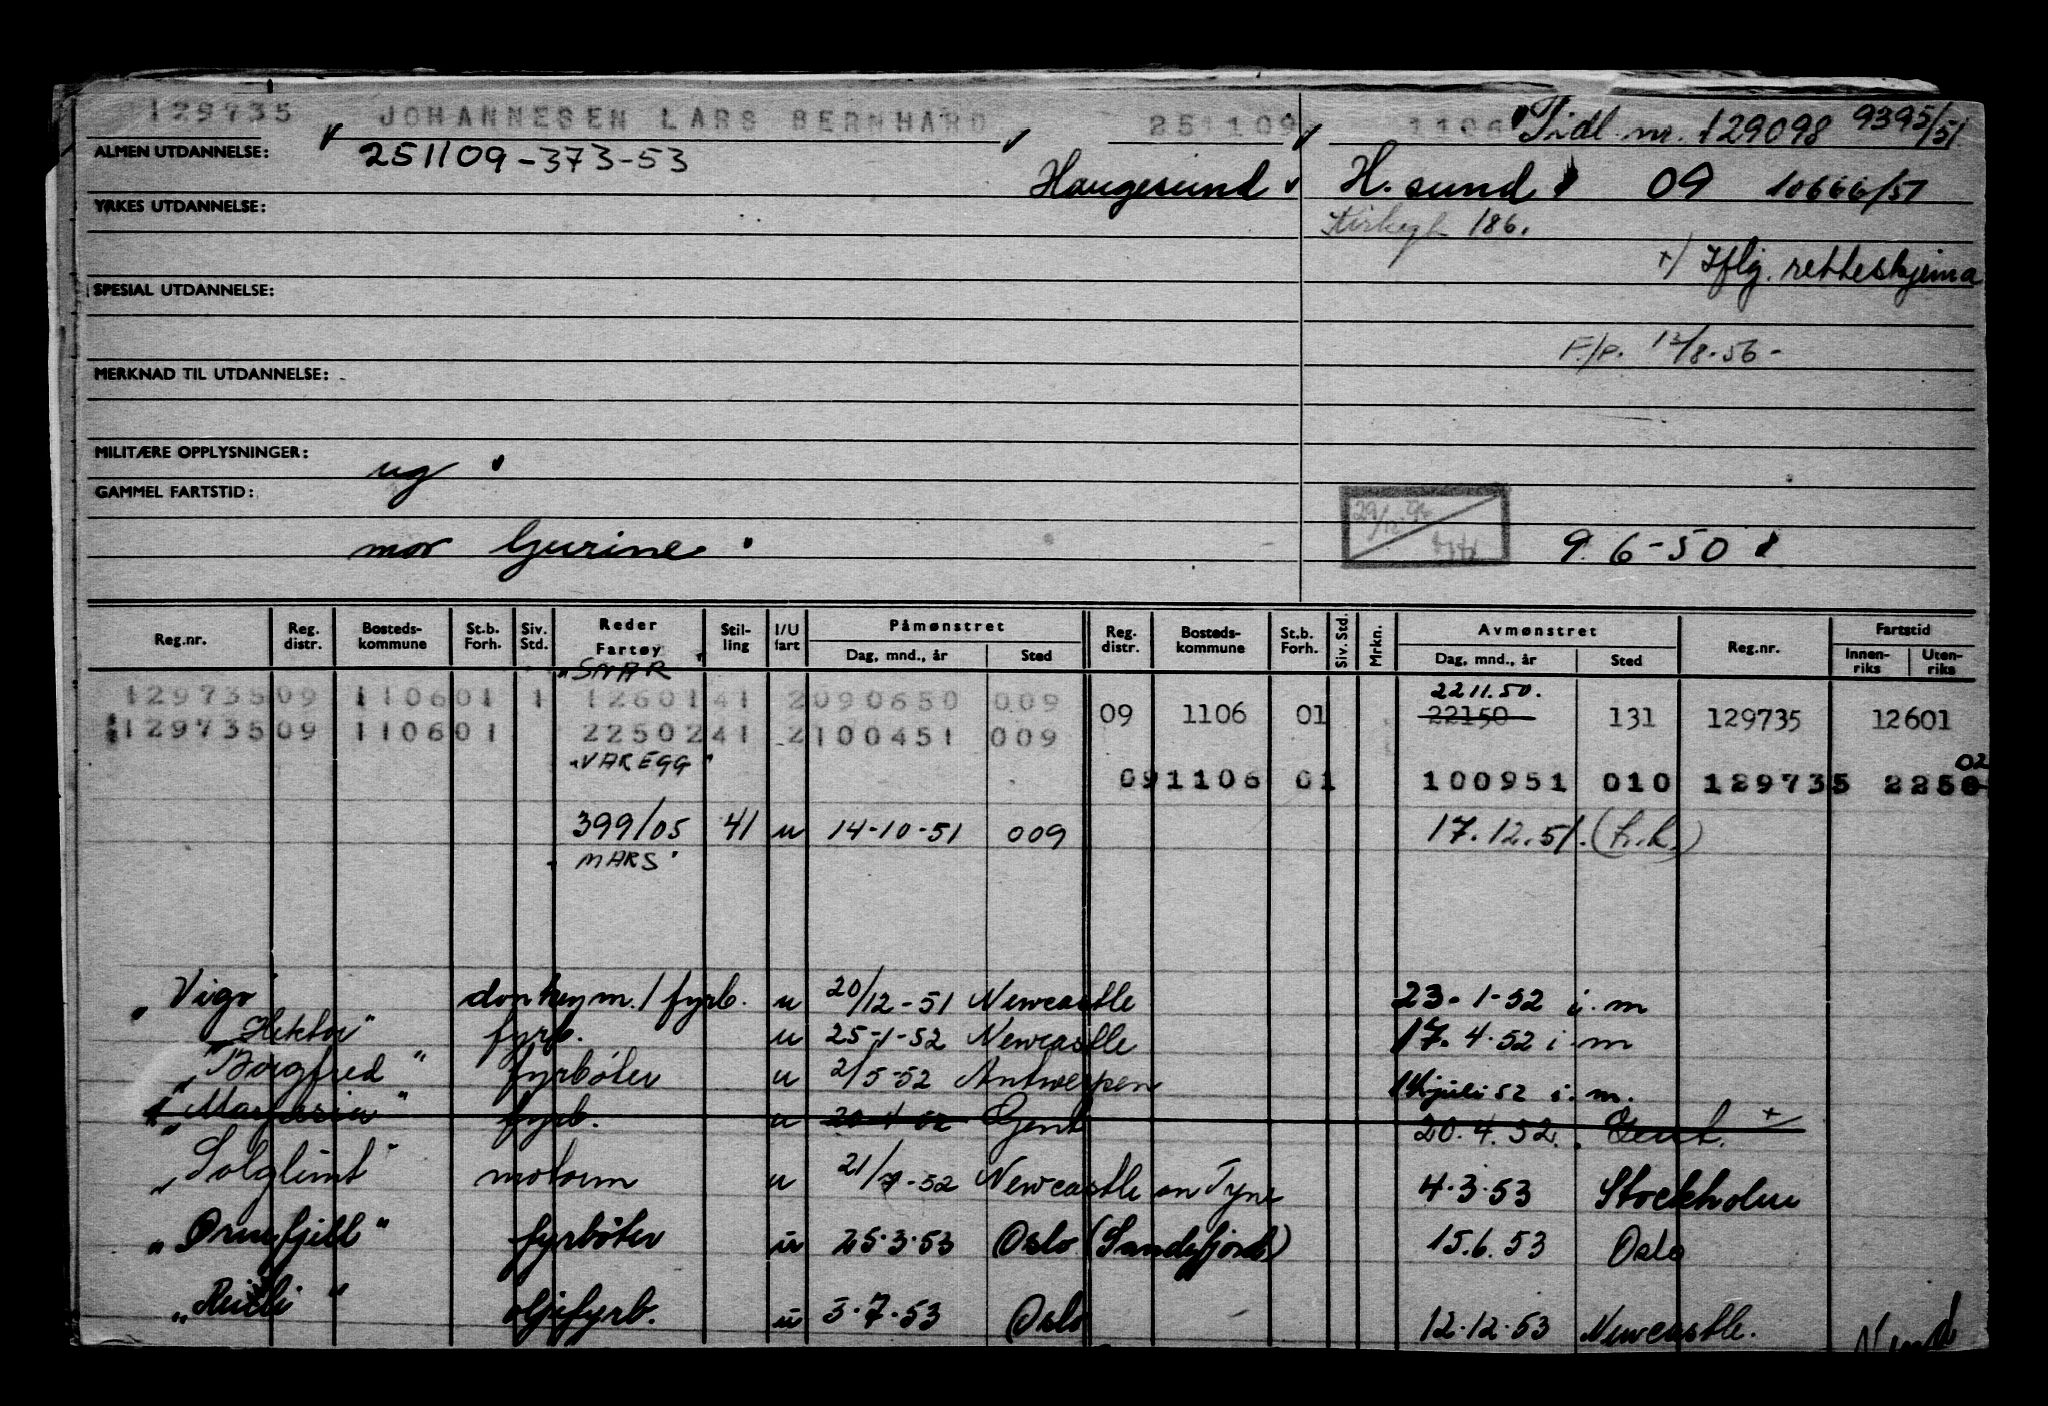 129735 JOHANNESEN LARS BERNHARD 251109 1106 Tidl. nr. 129098 9395/51
ALMEN UTDANNELSE: 251109-373-53
Haugesund H. sund 09 10666/51
YRKES UTDANNELSE:
Kirkegt 186.
+) Iflg. retteskjema
SPESIAL UTDANNELSE:
F/p. 13/8-56-
MERKNAD TIL UTDANNELSE:
MILITÆRE OPPLYSNINGER: ug
GAMMEL FARTSTID:
mor Gurine 9. 6-50
Reg.nr. Reg. distr. Bosteds-kommune St.b. Forh. Siv. Std. Reder Fartøy Stil-ling I/U fart Påmønstret Dag, mnd., år Sted Reg. distr. Bosteds-kommune St.b. Forh. Siv. Std. Mrkn. Avmønstret Dag, mnd., år Sted Reg.nr. Fartstid Innen-riks Uten-riks
"SNAR"
129735 09 1106 01 1 12601 41 2 090650 009
2211.50.
09 1106 01 22150 131 129735 12601
129735 09 1106 01 22502 41 2 100451 009
"VAREGG"
09 1106 01 100951 010 129735 2250 02
399/05 41 u 14-10-51 009 17.12.51. (h.k.)
"MARS"
"Vigo" donkeym./fyrb. u 20/12-51 Newcastle 23-1-52 i. m
"Hektor" fyrb. u 25-1-52 Newcastle 17. 4.52 i. m
"Borgfred" fyrbøter u 2/5-52 Antwerpen 14 juli 52 i. m.
fyrb. u Gent 20.4.52. Gent. +
"Solglimt" motorm u 21/7-52 Newcastle on Tyne 4.3.53 Stockholm
"Ørnefjell" fyrbøter u 25.3.53 Oslo (Sandefjord) 15.6.53 Oslo
oljefyrb. u 3.7.53 Oslo 12.12.53 Newcastle.